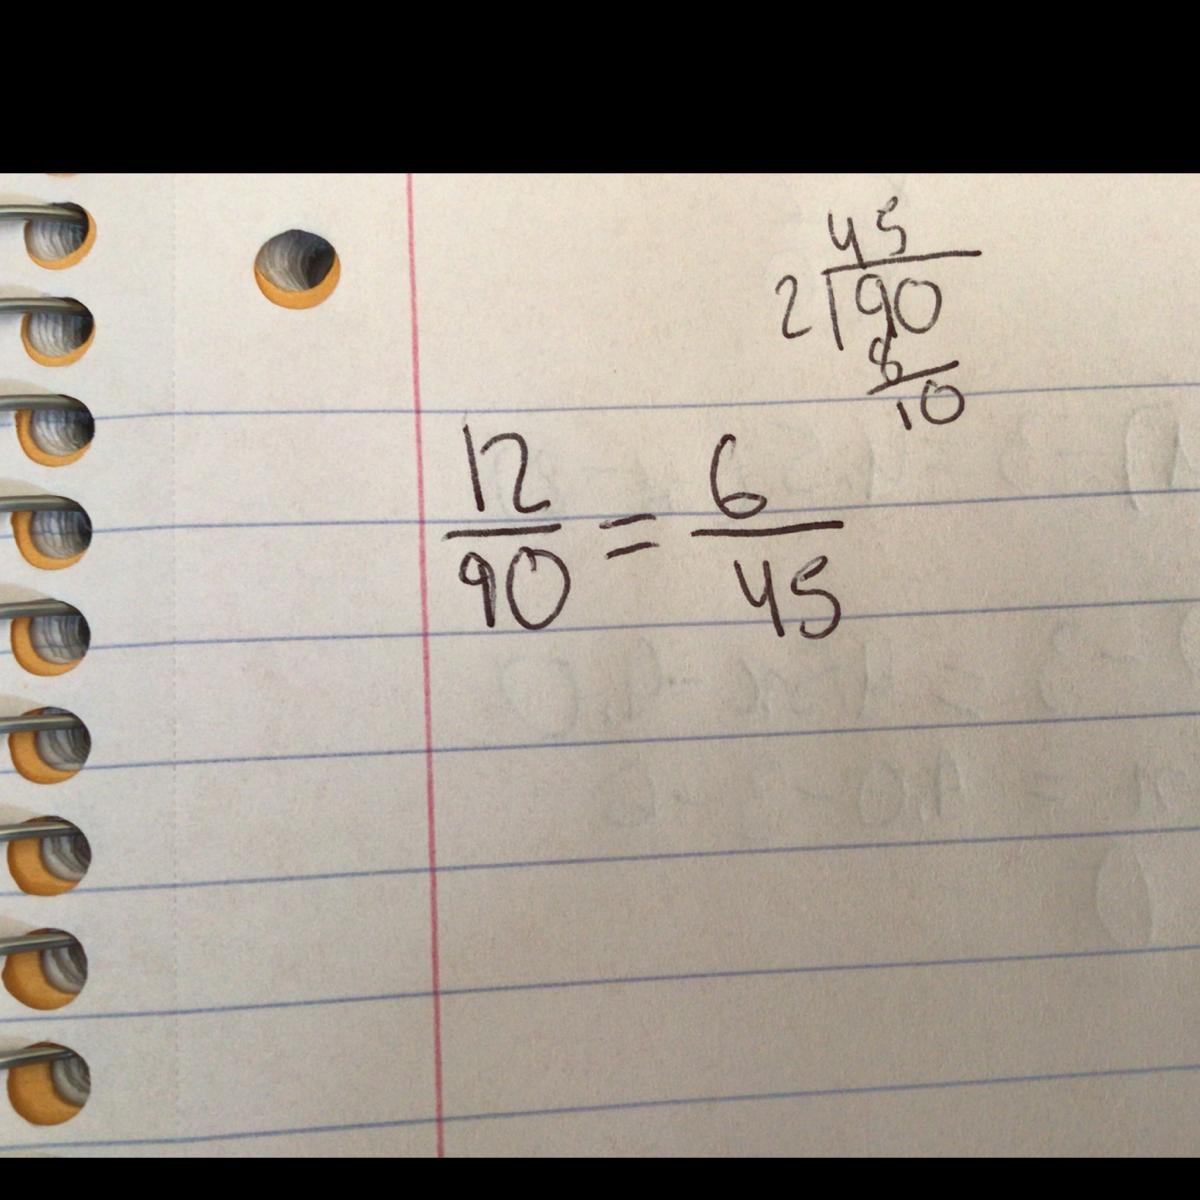 45
2)90
8
10
12/90 = 6/45